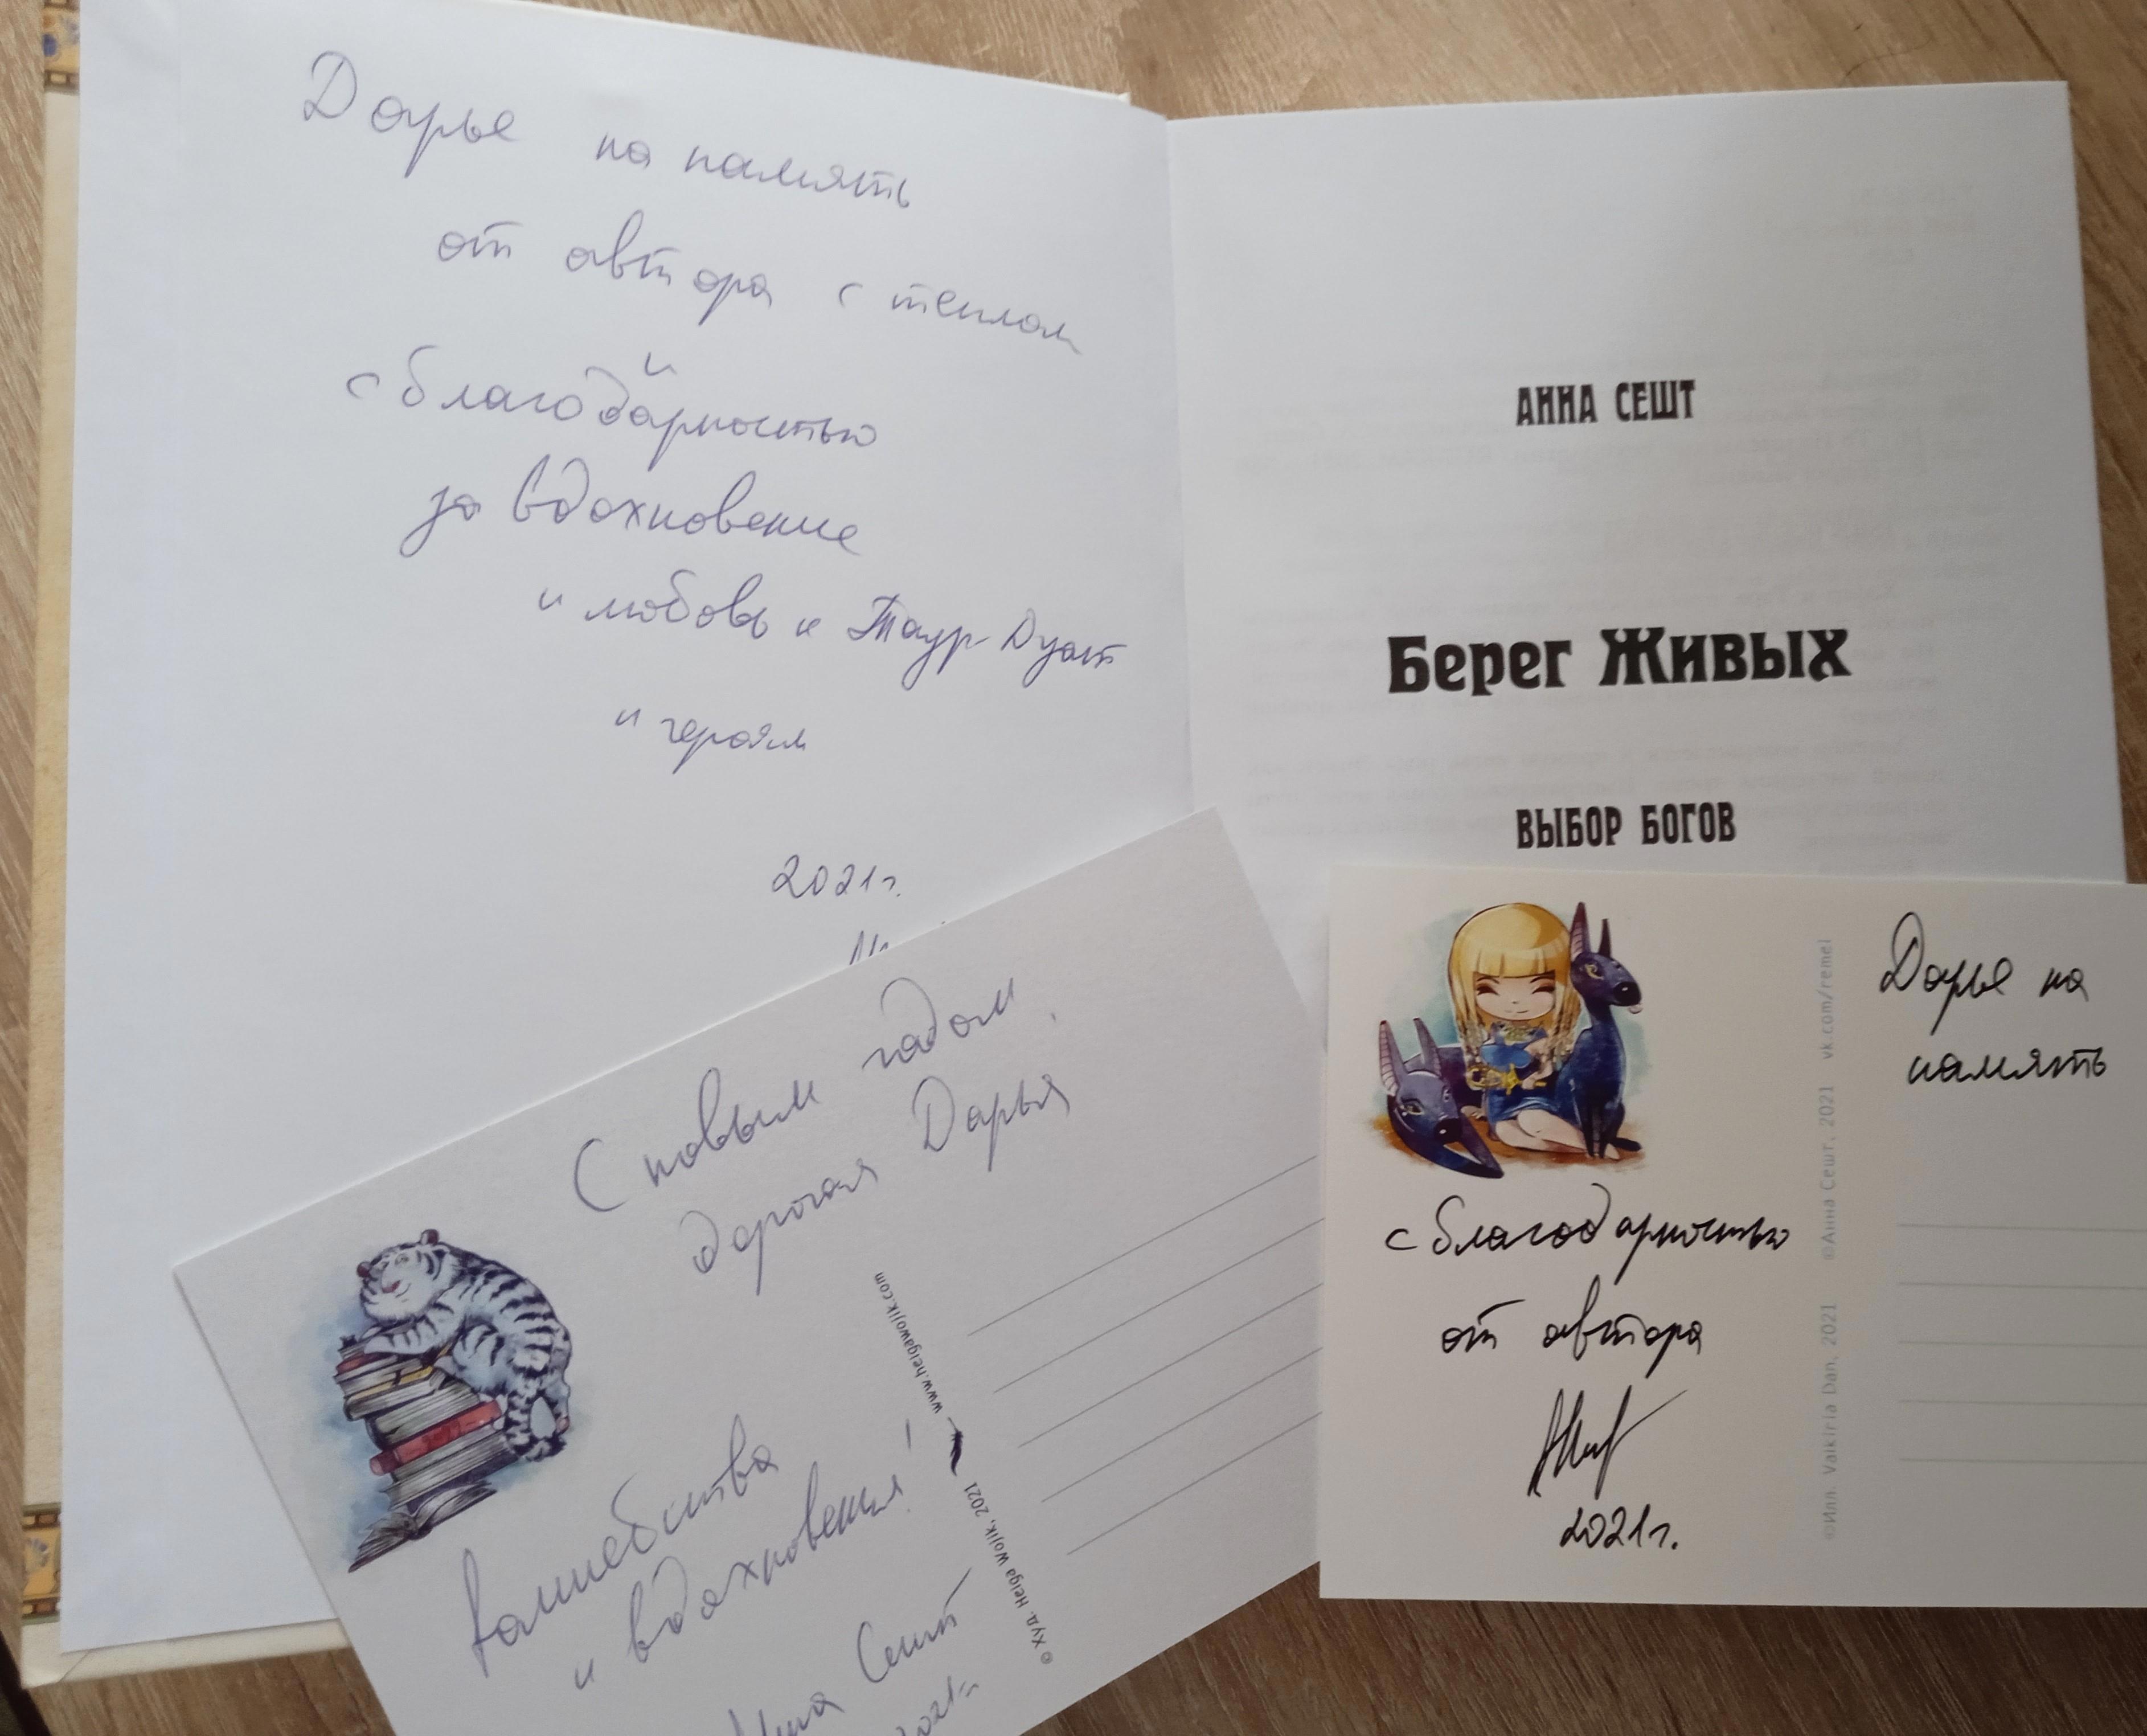 Дарье на память
от автора с теплом
и
с благодарностью
за вдохновение
и любовь к Таур-Дуат
и героям
2021г.
АННА СЕШТ
Берег Живых
ВЫБОР БОГОВ
С новым годом,
дорогая Дарья
волшебства
и вдохновения!
Анна Сешт
2021г.
www.heigawojik.com
© Худ. Heiga Wojik, 2021
Дарье на
память
с благодарностью
от автора
2021г.
©Илл. Valkiria Dan, 2021 ©Анна Сешт, 2021 vk.com/remel